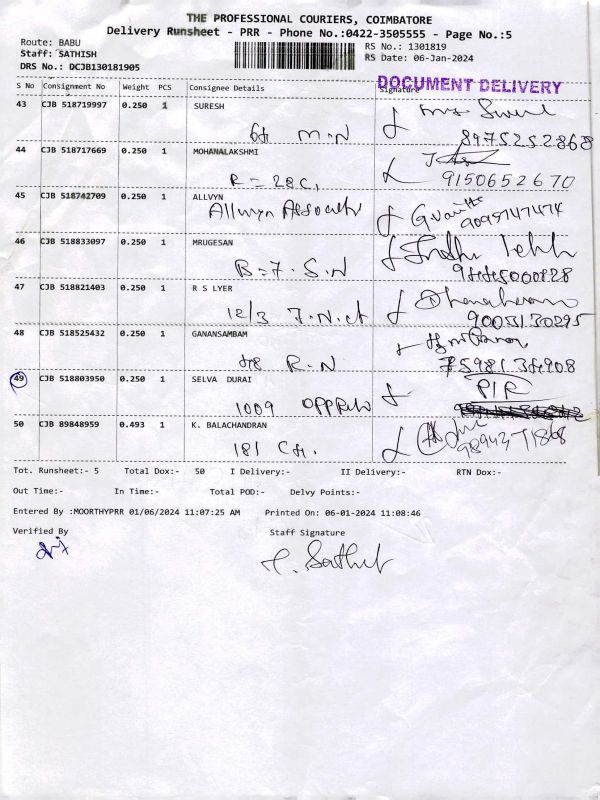 THE PROFESSIONAL COURIERS, COIMBATORE
Delivery Runsheet - PRR - Phone No.:0422-3505555 - Page No.:5
Route: BABU
Staff: SATHISH
DRS No.: DCJB130181905
RS No.: 1301819
RS Date: 06-Jan-2024
DOCUMENT DELIVERY
S No Consignment No Weight PCS Consignee Details Signature
43 CJB 518719997 0.250 1 SURESH
M.N
8975252868
44 CJB 518717669 0.250 1 MOHANALAKSHMI
R = 28 C,
9150652670
45 CJB 518742709 0.250 1 ALLVYN
Allwyn
9095747474
46 CJB 518833097 0.250 1 MRUGESAN
B=7. S.N
47 CJB 518821403 0.250 1 R S LYER
12/3 7.N.
9003130295
48 CJB 518525432 0.250 1 GANANSAMBAM
R.N
49 CJB 518803950 0.250 1 SELVA DURAI
1009
50 CJB 89848959 0.493 1 K. BALACHANDRAN
181
Tot. Runsheet:- 5 Total Dox:- 50 I Delivery:- II Delivery:- RTN Dox:-
Out Time:- In Time:- Total POD:- Delvy Points:-
Entered By :MOORTHYPRR 01/06/2024 11:07:25 AM Printed On: 06-01-2024 11:08:46
Verified By Staff Signature